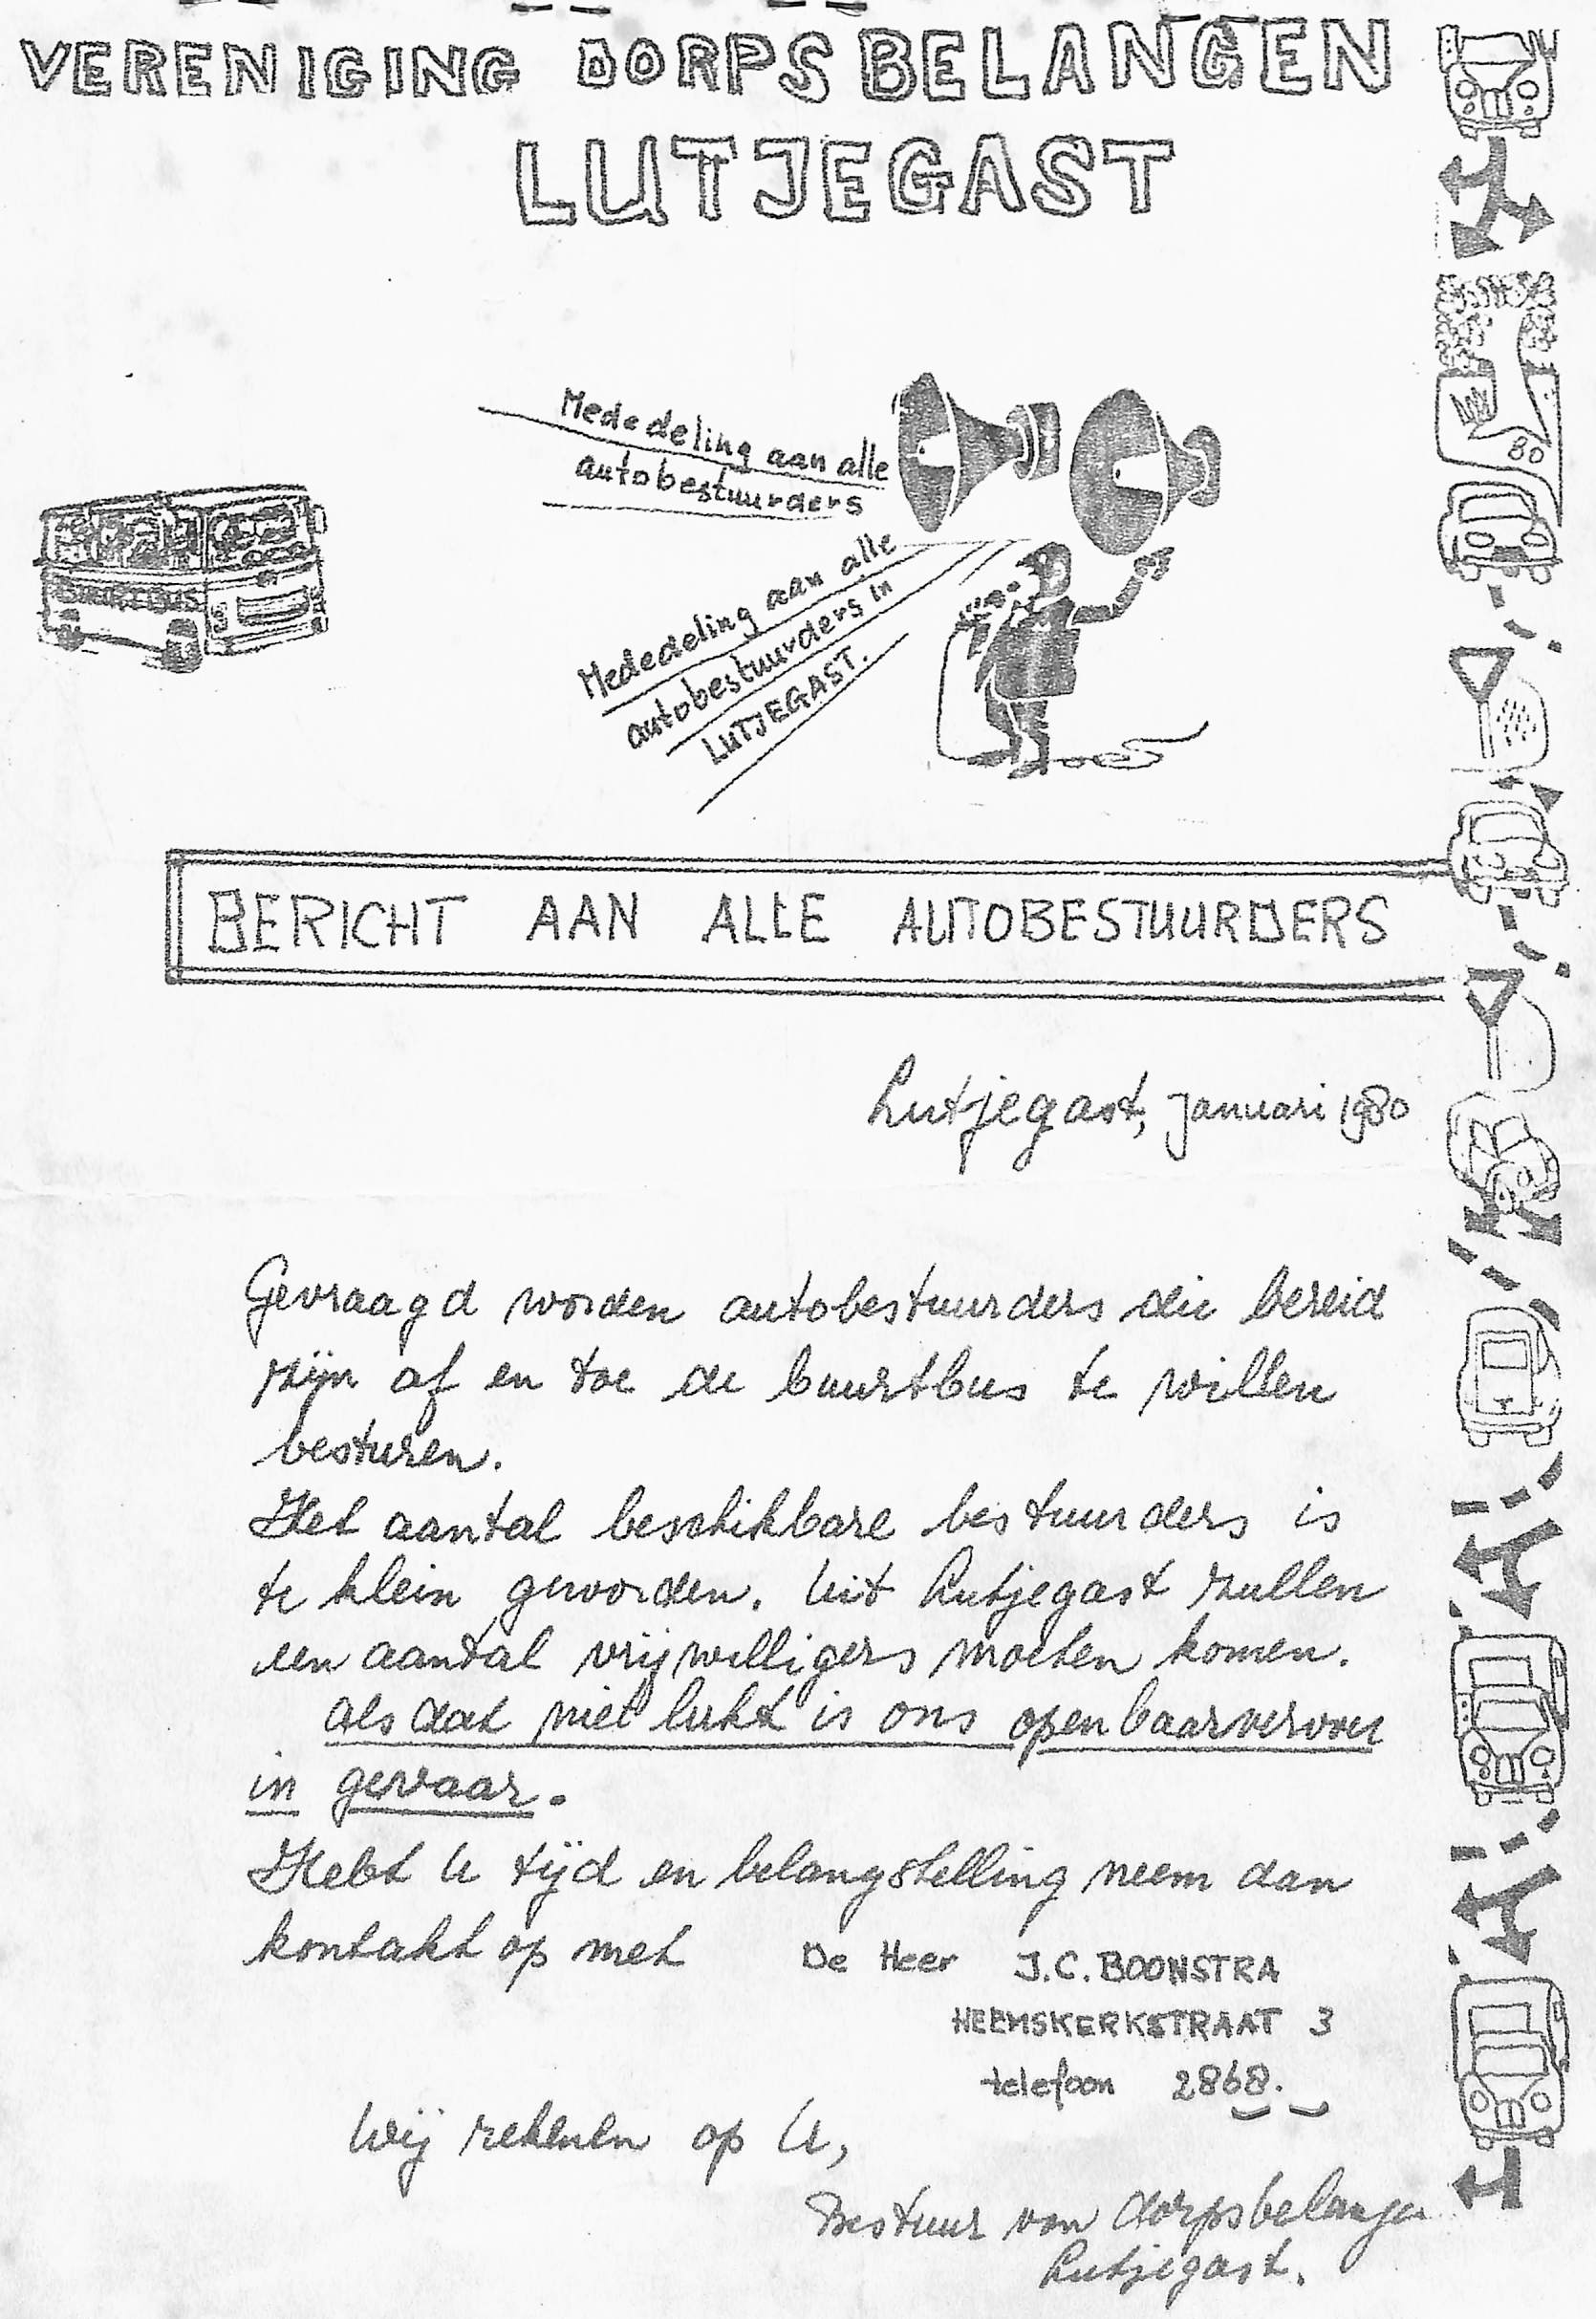 VERENIGING DORPSBELANGEN
LUTJEGAST
Mededeling aan alle
autobestuurders
Mededeling aan alle
autobestuurders in
LUTJEGAST.
80
BERICHT AAN ALLE AUTOBESTUURDERS
Lutjegast, Januari 1980
Gevraagd worden autobestuurders die bereid
zijn af en toe de buurtbus te willen
besturen.
Het aantal beschikbare bestuurders is
te klein geworden. Uit Lutjegast zullen
een aantal vrijwilligers moeten komen.
Als dat niet lukt is ons openbaarvervoer
in gevaar.
Hebt U tijd en belangstelling neem dan
kontakt op met De Heer J.C. BOONSTRA
HEEMSKERKSTRAAT 3
telefoon 2868.
Wij rekenen op U,
Bestuur van dorpsbelangen
Lutjegast.